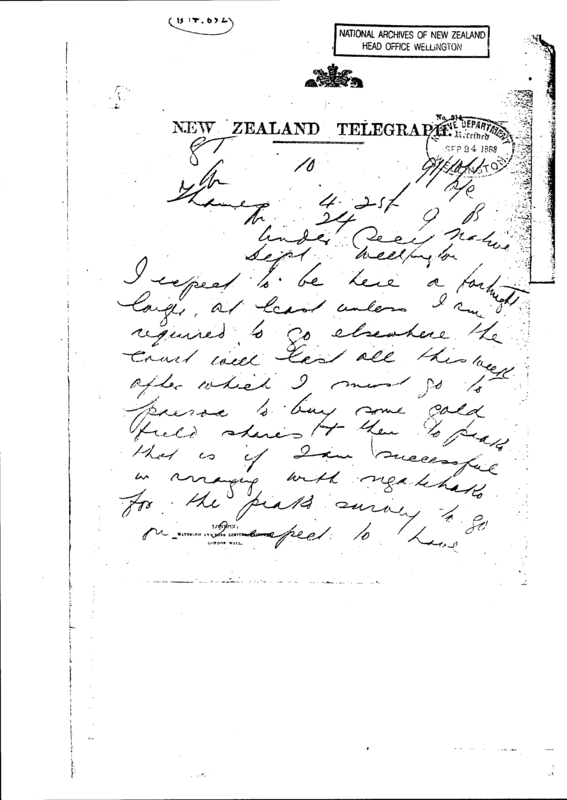 NATIONAL ARCHIVES OF NEW ZEALAND
HEAD OFFICE WELLINGTON
NEW ZEALAND TELEGRAPH.
NATIVE DEPARTMENT
Received
SEP 24 1888
WELLINGTON
10
Thames 4 2st
24 9
Under Secy Native
Dept Wellington
I expect to be here a fortnight
longer at least unless I am
required to go elsewhere the
Court will last all this week
after which I must go to
paeroa to buy some gold
field shares & then to piako
that is if I am successful
in arranging with ngatihako
for the piako survey to go
on expect to have
LONDON WALL.